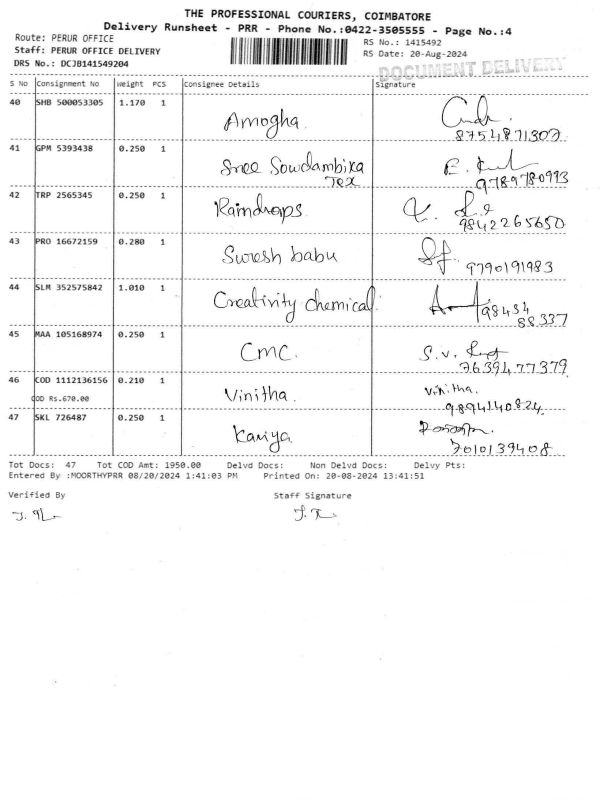 THE PROFESSIONAL COURIERS, COIMBATORE
Delivery Runsheet - PRR - Phone No.:0422-3505555 - Page No.:4
Route: PERUR OFFICE
RS No.: 1415492
Staff: PERUR OFFICE DELIVERY
RS Date: 20-Aug-2024
DRS No.: DCJB141549204
DOCUMENT DELIVERY
S No Consignment No Weight PCS Consignee Details Signature
40 SHB 500053305 1.170 1 Amogha
8754871302
41 GPM 5393438 0.250 1 Sree Sowdambika
Tex
9789780993
42 TRP 2565345 0.250 1 Raindrops
9842265650
43 PRO 16672159 0.280 1 Suresh babu
9790191983
44 SLM 352575842 1.010 1 Creativity chemical
98434
88337
45 MAA 105168974 0.250 1 CMC.
S.V.
7639477379
46 COD 1112136156 0.210 1 Vinitha Vinitha.
COD Rs.670.00
9894140824
47 SKL 726487 0.250 1 Kaviya
7010139408
Tot Docs: 47 Tot COD Amt: 1950.00 Delvd Docs: Non Delvd Docs: Delvy Pts:
Entered By :MOORTHYPRR 08/20/2024 1:41:03 PM Printed On: 20-08-2024 13:41:51
Verified By Staff Signature